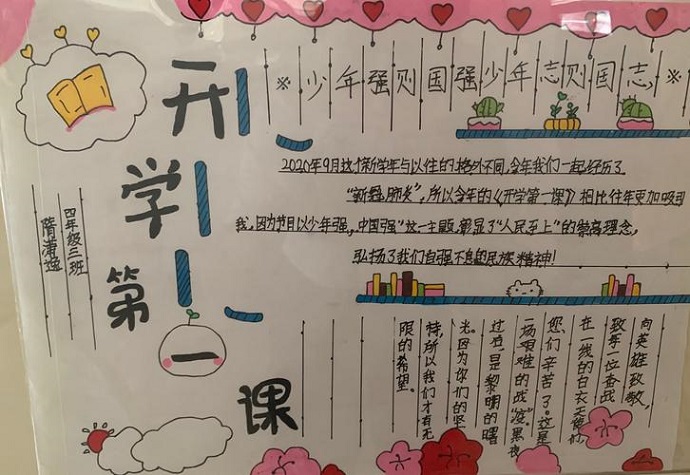 开学第一课
※少年强则国强少年志则国志※
2020年9月这个新学年与以往的格外不同,今年我们一起经历了
"新冠肺炎",所以今年的《开学第一课》相比往年更加吸引
我,因为节目以"少年强,中国强"这一主题,彰显了"人民至上"的崇高理念,
弘扬了我们自强不息的民族精神!
四年级三班
向英雄致敬,
致每一位奋战
在一线的白衣天使们,
您们辛苦了。这是
一场艰难的战"疫"。黑夜
过后是黎明的曙
光。因为你们的坚
持,所以我们才有无
限的希望。